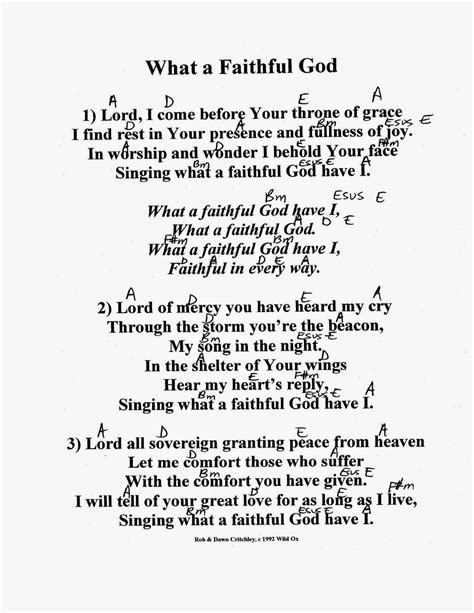 What a Faithful God
A D E A
1) Lord, I come before Your throne of grace
Bm Esus E
I find rest in Your presence and fullness of joy.
F#m
In worship and wonder I behold Your face
Bm Esus E A
Singing what a faithful God have I.
Bm Esus E
What a faithful God have I,
A D E
What a faithful God.
F#m Bm
What a faithful God have I,
D E A
Faithful in every way.
A D E A
2) Lord of mercy you have heard my cry
Through the storm you're the beacon,
Bm Esus E
My song in the night.
A D
In the shelter of Your wings
E F#m
Hear my heart's reply,
D Bm Esus E A
Singing what a faithful God have I.
A D E A
3) Lord all sovereign granting peace from heaven
Let me comfort those who suffer
Bm Esus E
With the comfort you have given.
A D E F#m
I will tell of your great love for as long as I live,
D Bm Esus E A
Singing what a faithful God have I.
Rob & Dawn Critchley, c 1992 Wild Ox